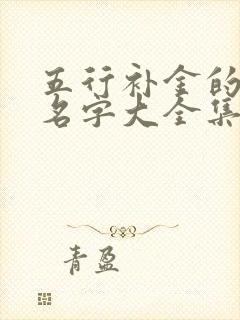 五行补金的
名字大全集
青盈